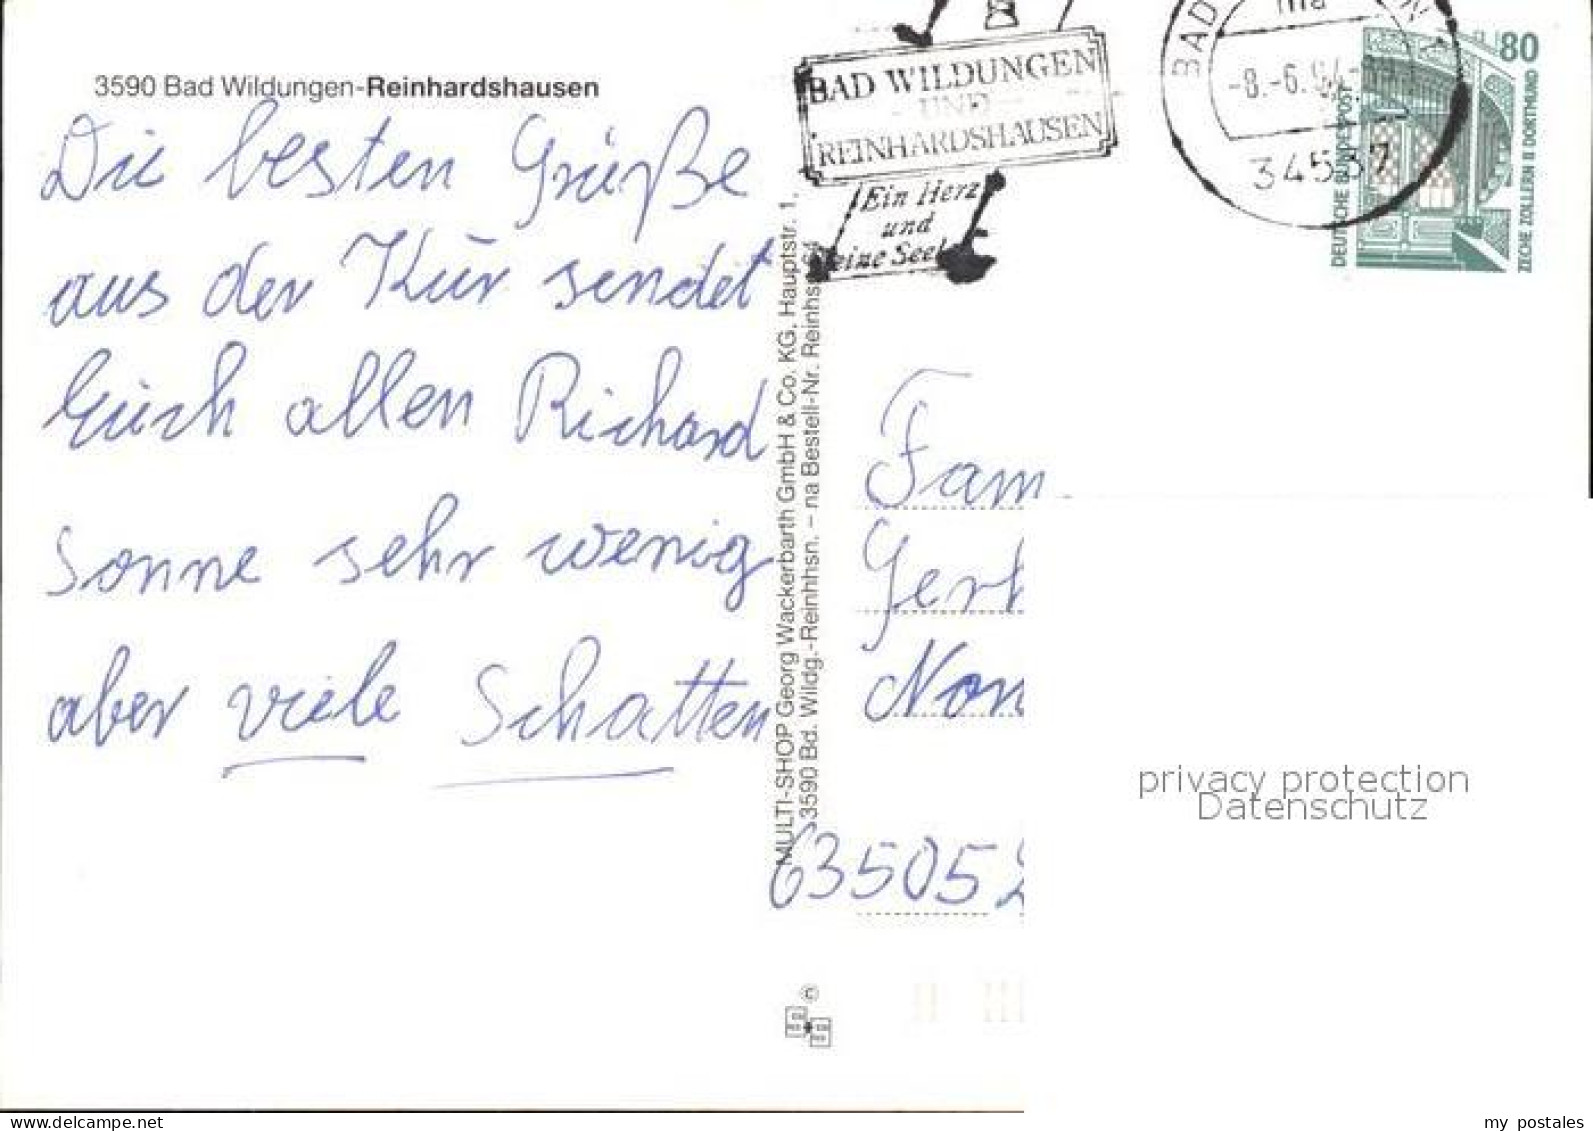 3590 Bad Wildungen-Reinhardshausen
Die besten Grüße
aus der Kur sendet
Euch allen Richard
Sonne sehr wenig
aber viele Schatten
MULTI-SHOP Georg Wackerbarth GmbH & Co. KG, Hauptstr. 1,
3590 Bd. Wildg.-Reinhhsn. – na Bestell-Nr. Reinhs
BAD WILDUNGEN
UND
REINHARDSHAUSEN
Ein Herz
und
eine Seele
BAD
-8.-6.94-
34537
80
DEUTSCHE BUNDESPOST
ZECHE ZOLLERN II DORTMUND
Fam
Gerh
Non
63505
©
privacy protection
Datenschutz
my postales